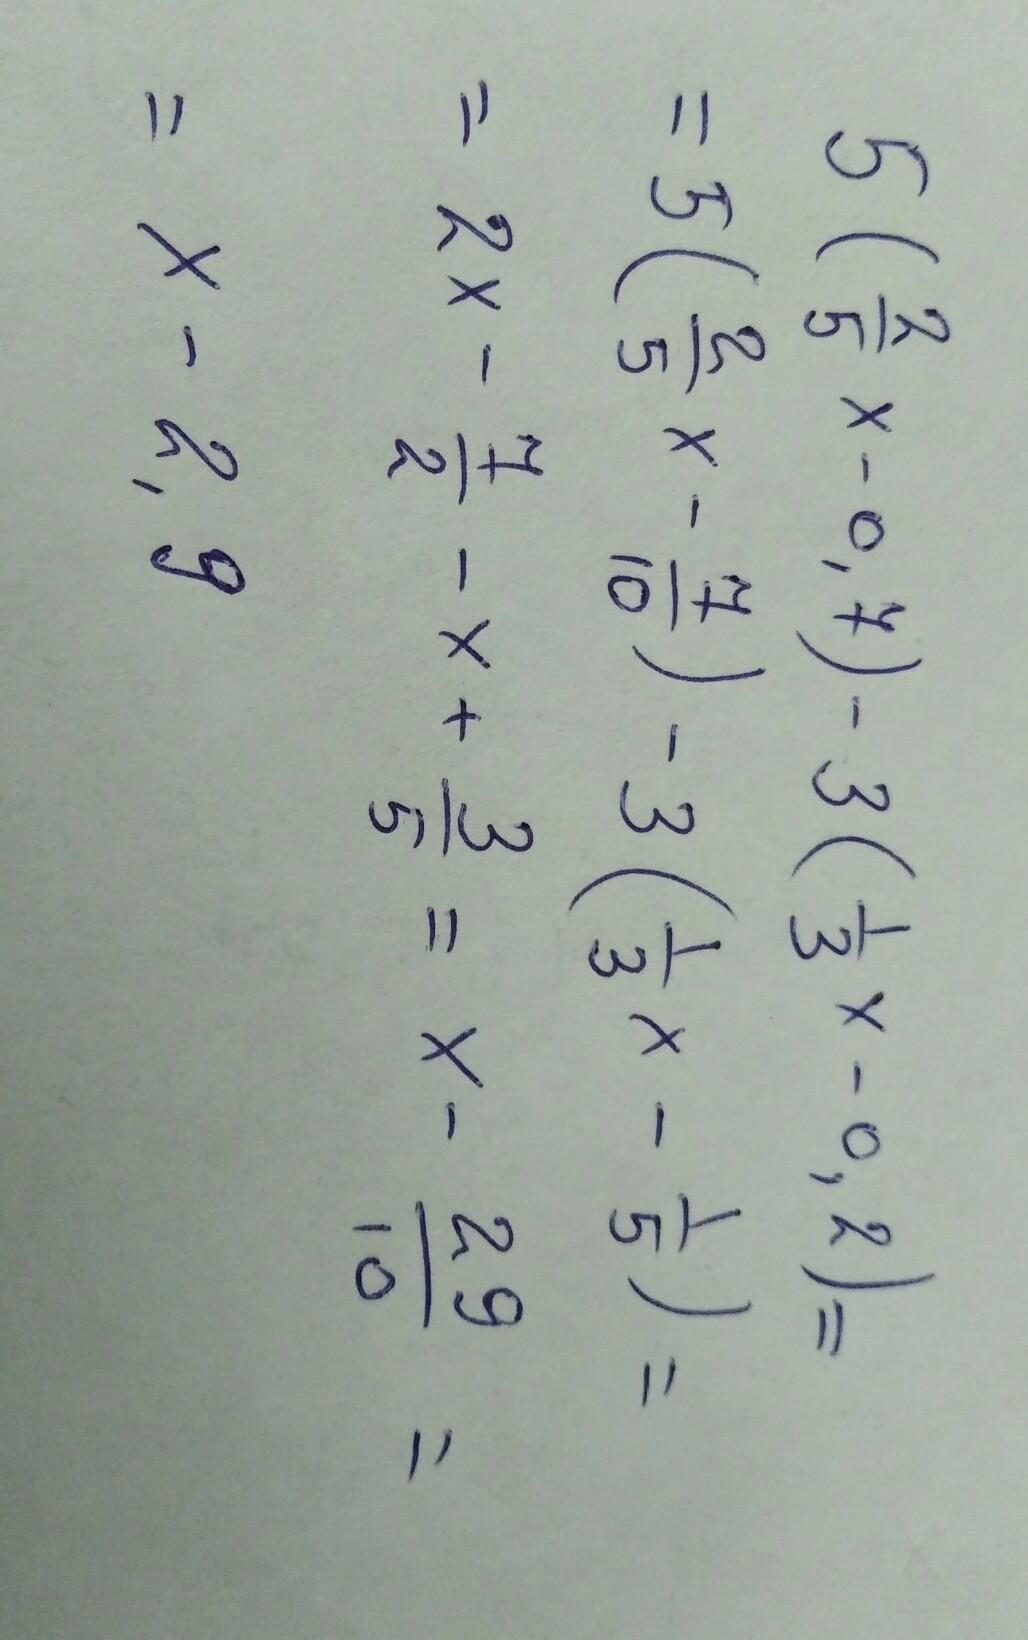 5(2/5 x - 0,7) - 3(1/3 x - 0,2) =
= 5(2/5 x - 7/10) - 3(1/3 x - 1/5) =
= 2x - 7/2 - x + 3/5 = x - 29/10 =
= x - 2,9